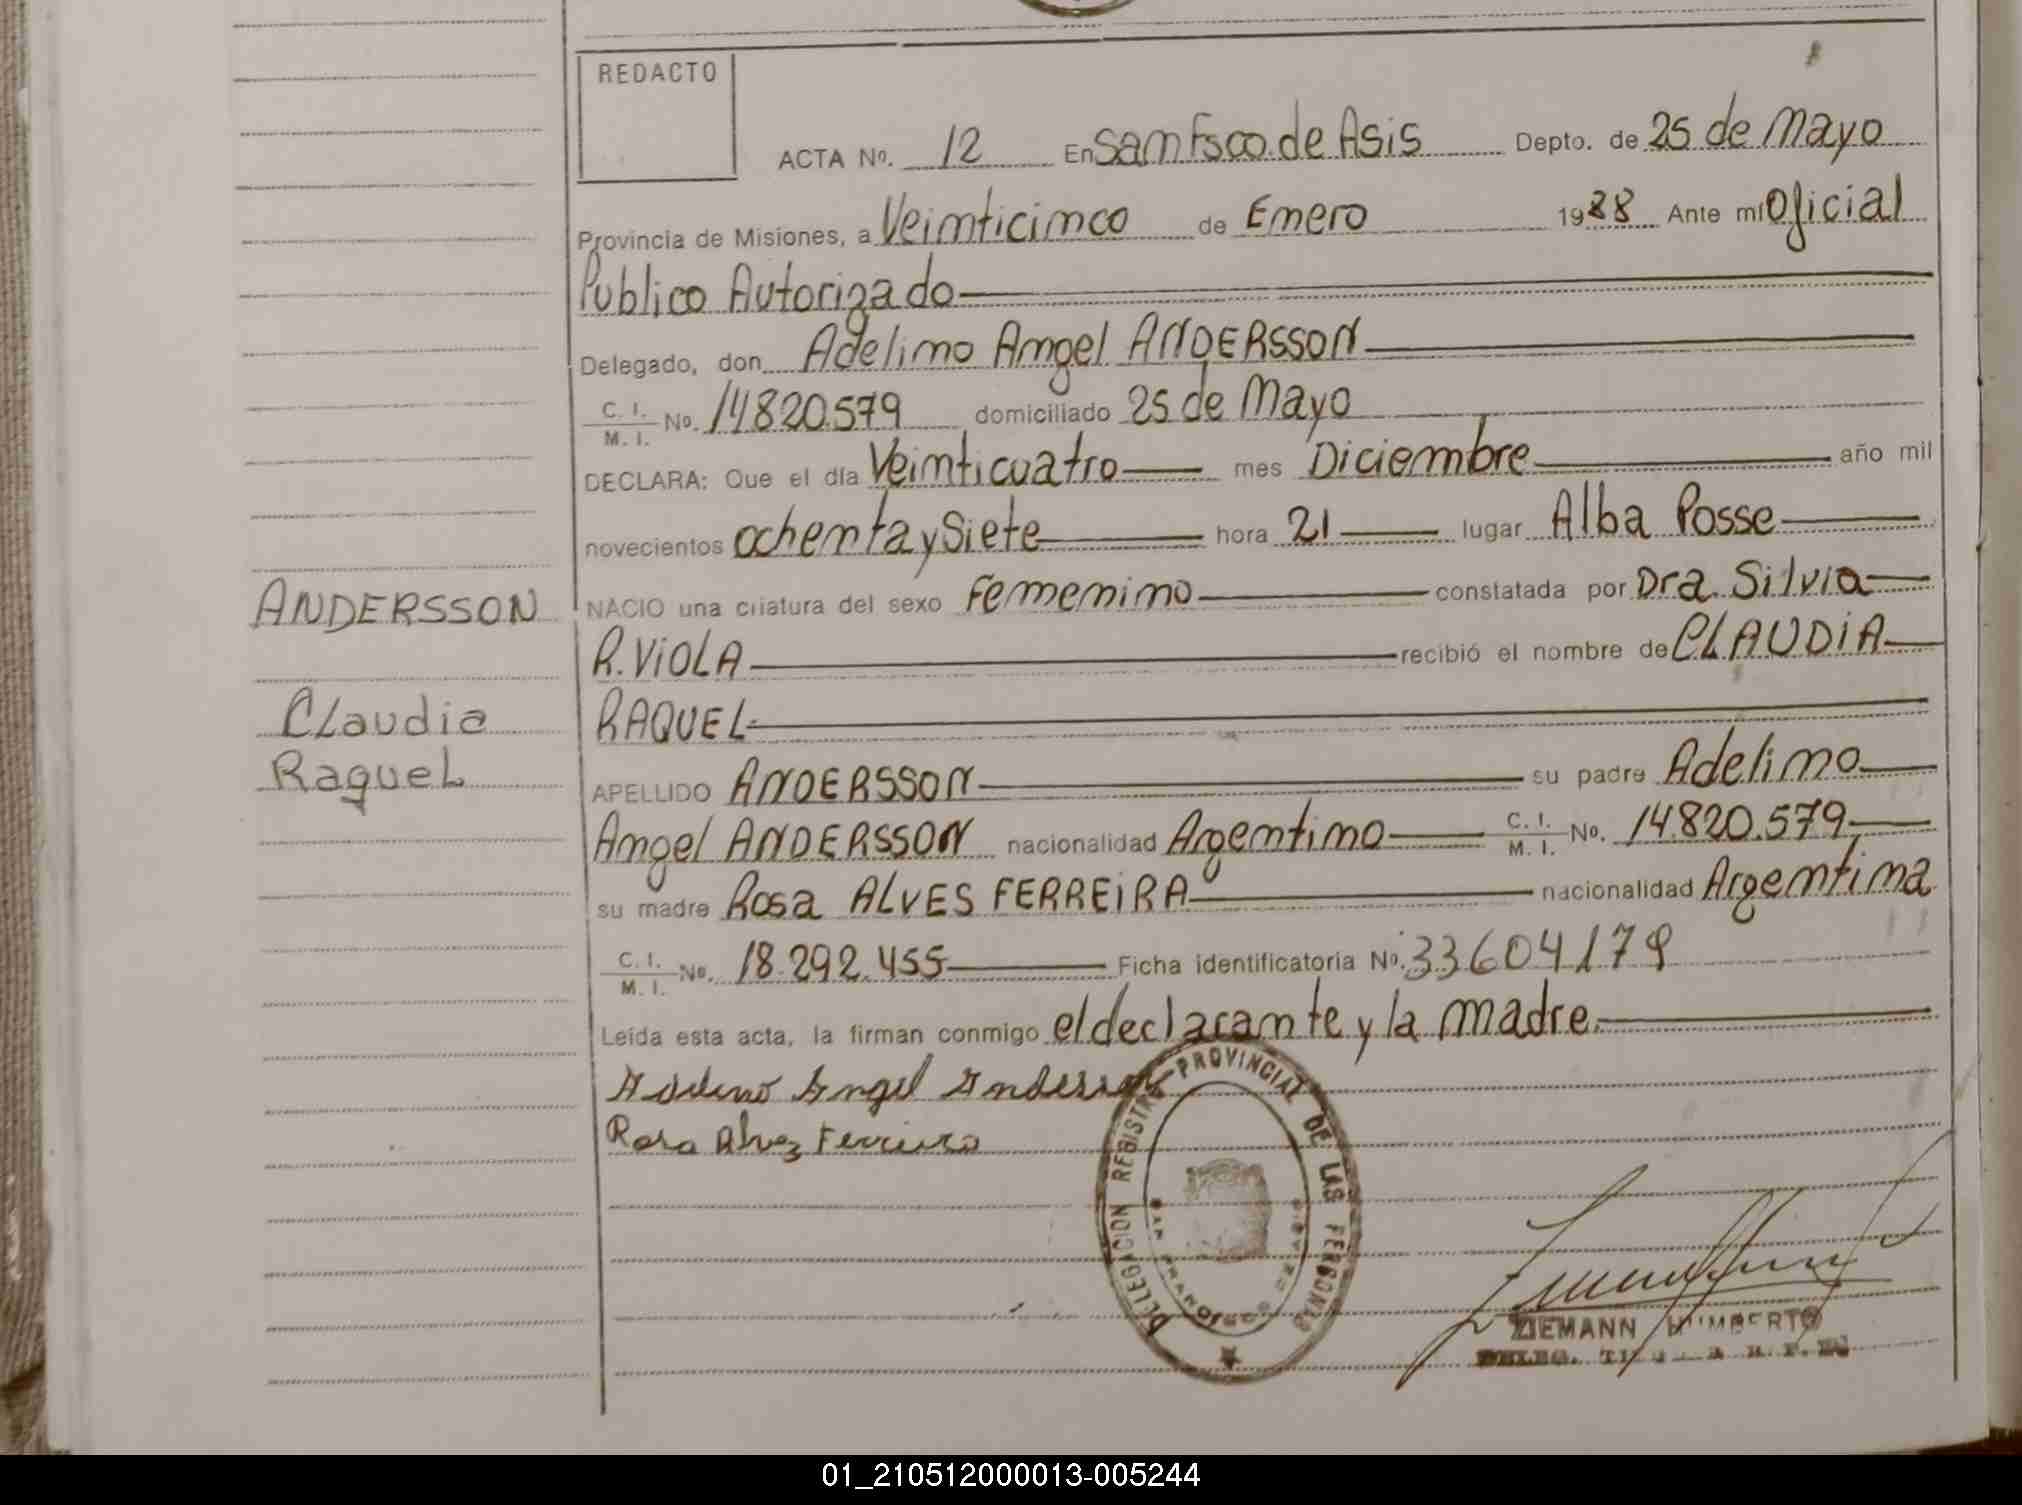 REDACTO
ACTA No. 12 En San Fsco. de Asis Depto. de 25 de Mayo
Provincia de Misiones, a Veinticinco de Enero 1988 Ante mí Oficial
Publico Autorizado
Delegado, don Adelino Angel ANDERSSON
C. I. / M. I. No. 14820.579 domiciliado 25 de Mayo
DECLARA: Que el día Veinticuatro mes Diciembre año mil
novecientos ochenta y Siete hora 21 lugar Alba Posse
NACIO una criatura del sexo Femenino constatada por Dra. Silvia
R. ViOLA recibió el nombre de CLAUDiA
RAQUEL
APELLIDO ANDERSSON su padre Adelino
Angel ANDERSSON nacionalidad Argentino C. I. / M. I. No. 14.820.579
su madre Rosa ALVES FERREiRA nacionalidad Argentina
C. I. / M. I. No. 18.292.455 Ficha identificatoria No. 33604179
Leída esta acta, la firman conmigo el declarante y la madre.
Adelino Angel Andersson
Rosa Alvez Ferreira
ANDERSSON
Claudia
Raquel
DELEGACION REGISTRO PROVINCIAL DE LAS PERSONAS
SAN FRANCISCO DE ASIS
ZIEMANN HUMBERTO
DELEG.
01_210512000013-005244